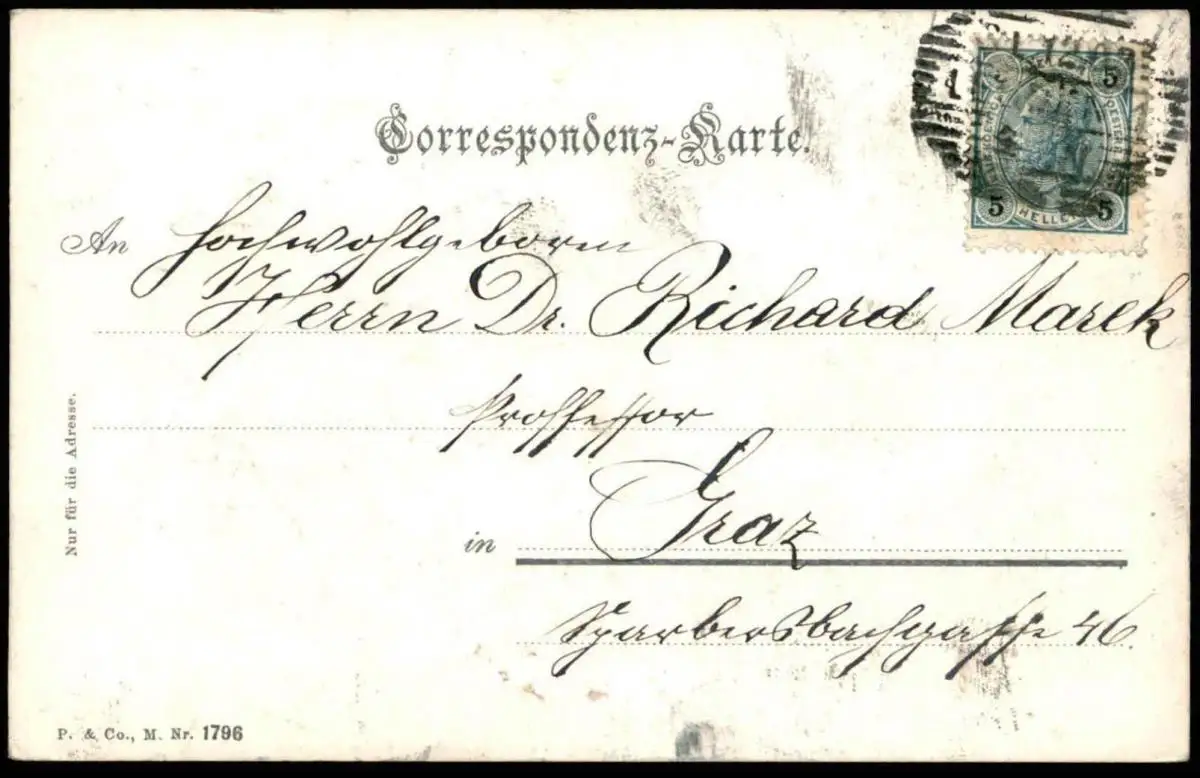 Correspondenz-Karte.
5 5
5 HELLER 5
An Hochwohlgeboren
Herrn Dr. Richard Marek
Professor
in Graz
Sparbersbachgasse 46.
Nur für die Adresse.
P. & Co., M. Nr. 1796